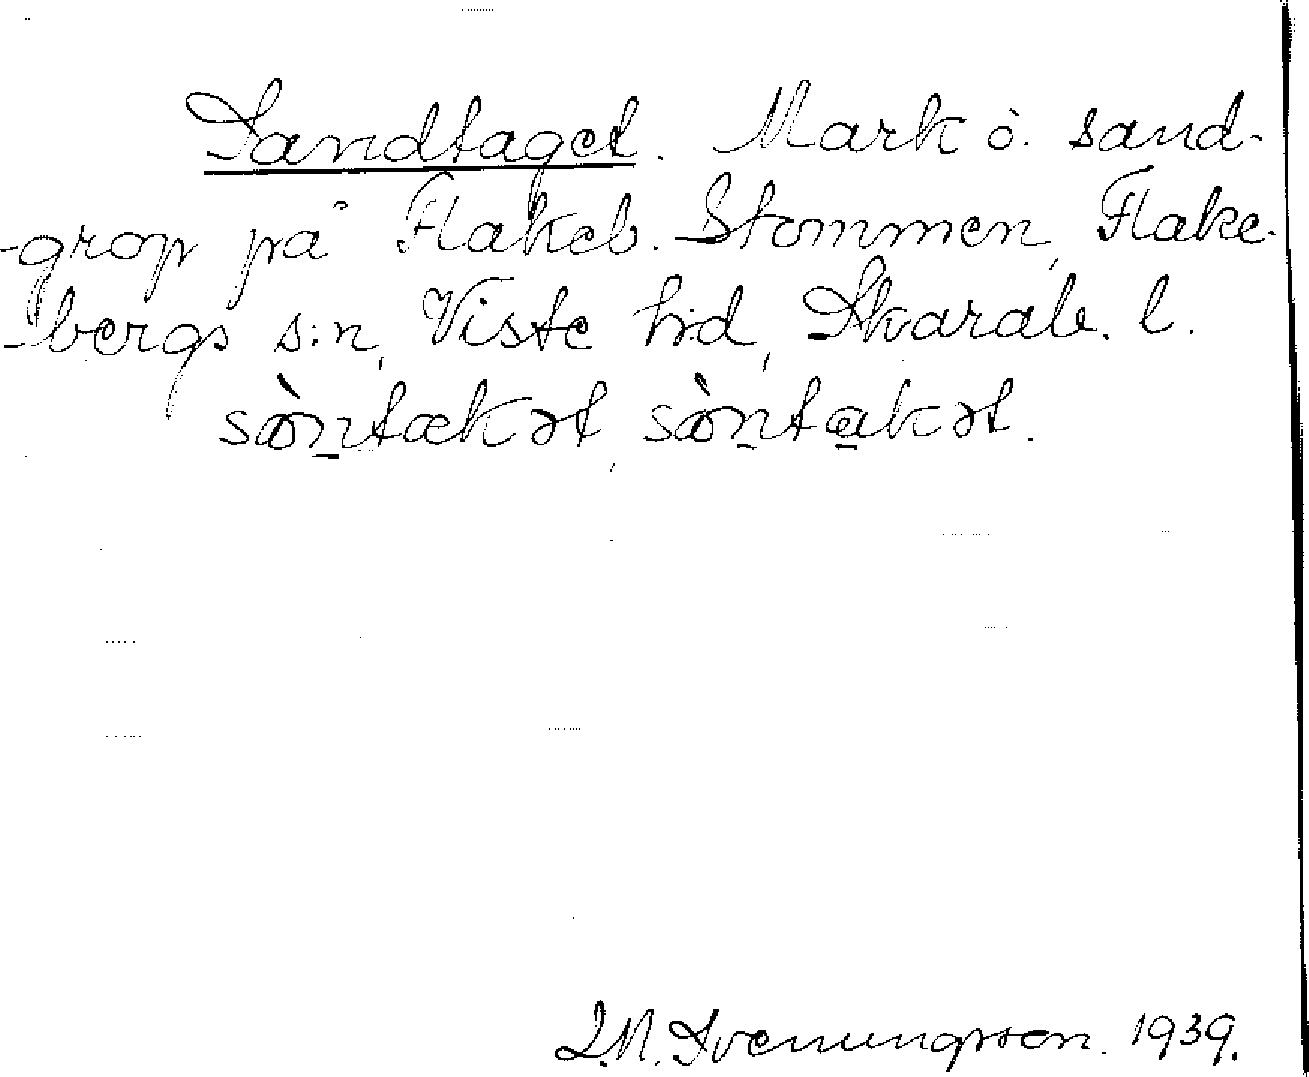 Sandtaget. Mark o. sand-
-grop på Flakeb. Stommen, Flake-
-bergs s:n, Viste h:d, Skarab. l.
sòntækət, sòntakət.
J.M. Svenungsson. 1939.